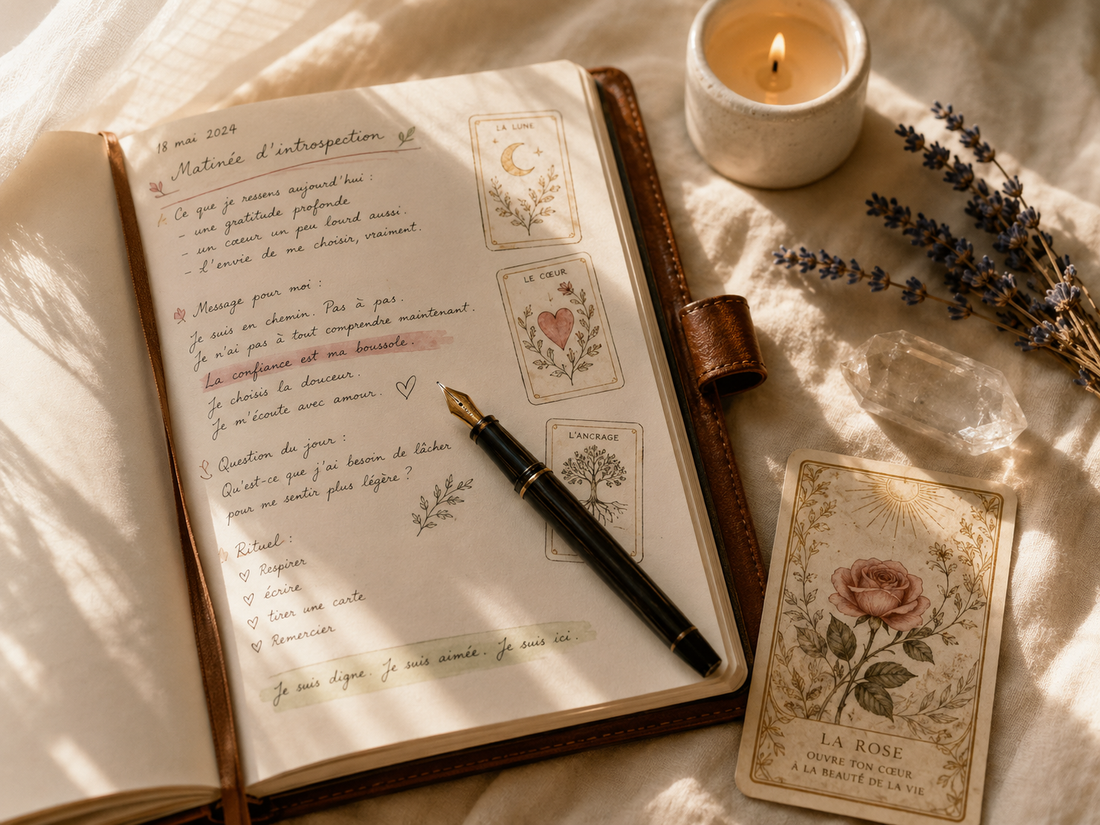 18 mai 2024
Matinée d'introspection
Ce que je ressens aujourd'hui :
- une gratitude profonde
- un cœur un peu lourd aussi.
- l'envie de me choisir, vraiment.
Message pour moi :
Je suis en chemin. Pas à pas.
Je n'ai pas à tout comprendre maintenant.
La confiance est ma boussole.
Je choisis la douceur.
Je m'écoute avec amour.
Question du jour :
Qu'est-ce que j'ai besoin de lâcher
pour me sentir plus légère ?
Rituel :
Respirer
écrire
tirer une carte
Remercier
Je suis digne. Je suis aimée. Je suis ici.
LA LUNE
LE CŒUR
L'ANCRAGE
LA ROSE
OUVRE TON CŒUR
À LA BEAUTÉ DE LA VIE